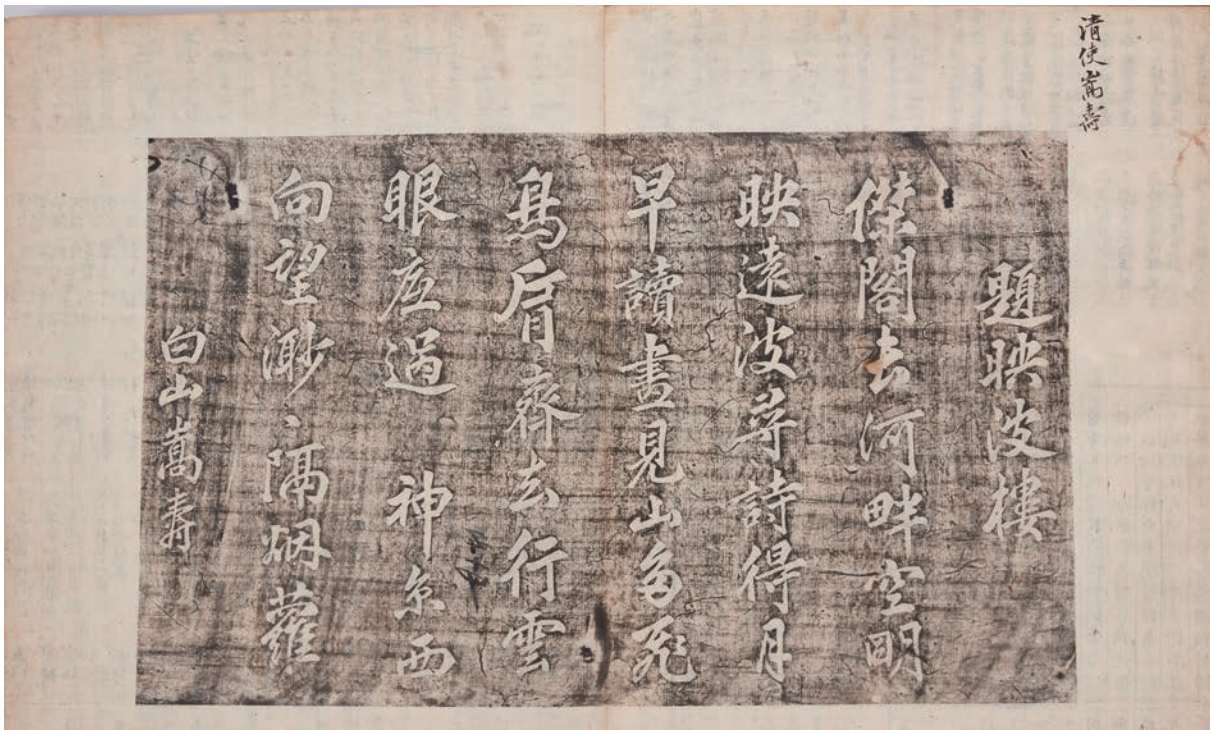 清使嵩壽
題映波樓
傑閣去河畔空明
映遠波尋詩得月
早讀畫見山多飛
鳥眉齊去行雲
眼底過 神京西
向望渺々隔烟蘿
白山嵩壽